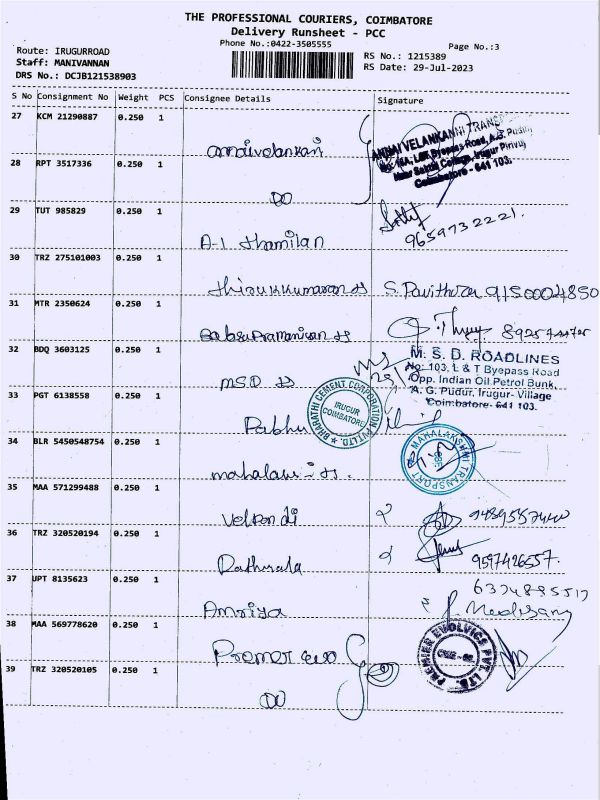 THE PROFESSIONAL COURIERS, COIMBATORE
Delivery Runsheet - PCC
Phone No.:0422-3505555
Page No.:3
Route: IRUGURROAD
Staff: MANIVANNAN
DRS No.: DCJB121538903
RS No.: 1215389
RS Date: 29-Jul-2023
S No Consignment No Weight PCS Consignee Details Signature
27 KCM 21290887 0.250 1
ANNAI VELANKANNI TRANS
Coimbatore - 641 103.
28 RPT 3517336 0.250 1
DO
29 TUT 985829 0.250 1
9659732221.
A-1 Thamilan
30 TRZ 275101003 0.250 1
Thirukkumaran S. Pavithra 9150004850
31 MTR 2350624 0.250 1
32 BDQ 3603125 0.250 1
M. S. D. ROADLINES
No: 103, L & T Byepass Road
Opp. Indian Oil Petrol Bunk,
A. G. Pudur, Irugur- Village
Coimbatore- 641 103.
MSD
33 PGT 6138558 0.250 1
BHARATHI CEMENT CORPORATION PVT LTD.
IRUGUR
COIMBATORE
Prabhu
34 BLR 5450548754 0.250 1
MAHALAKSHMI TRANSPORT
35 MAA 571299488 0.250 1
36 TRZ 320520194 0.250 1
9597426557.
37 UPT 8135623 0.250 1
Amriya
38 MAA 569778620 0.250 1
PREMIER EVOLVICS PVT. LTD.
39 TRZ 320520105 0.250 1
DO